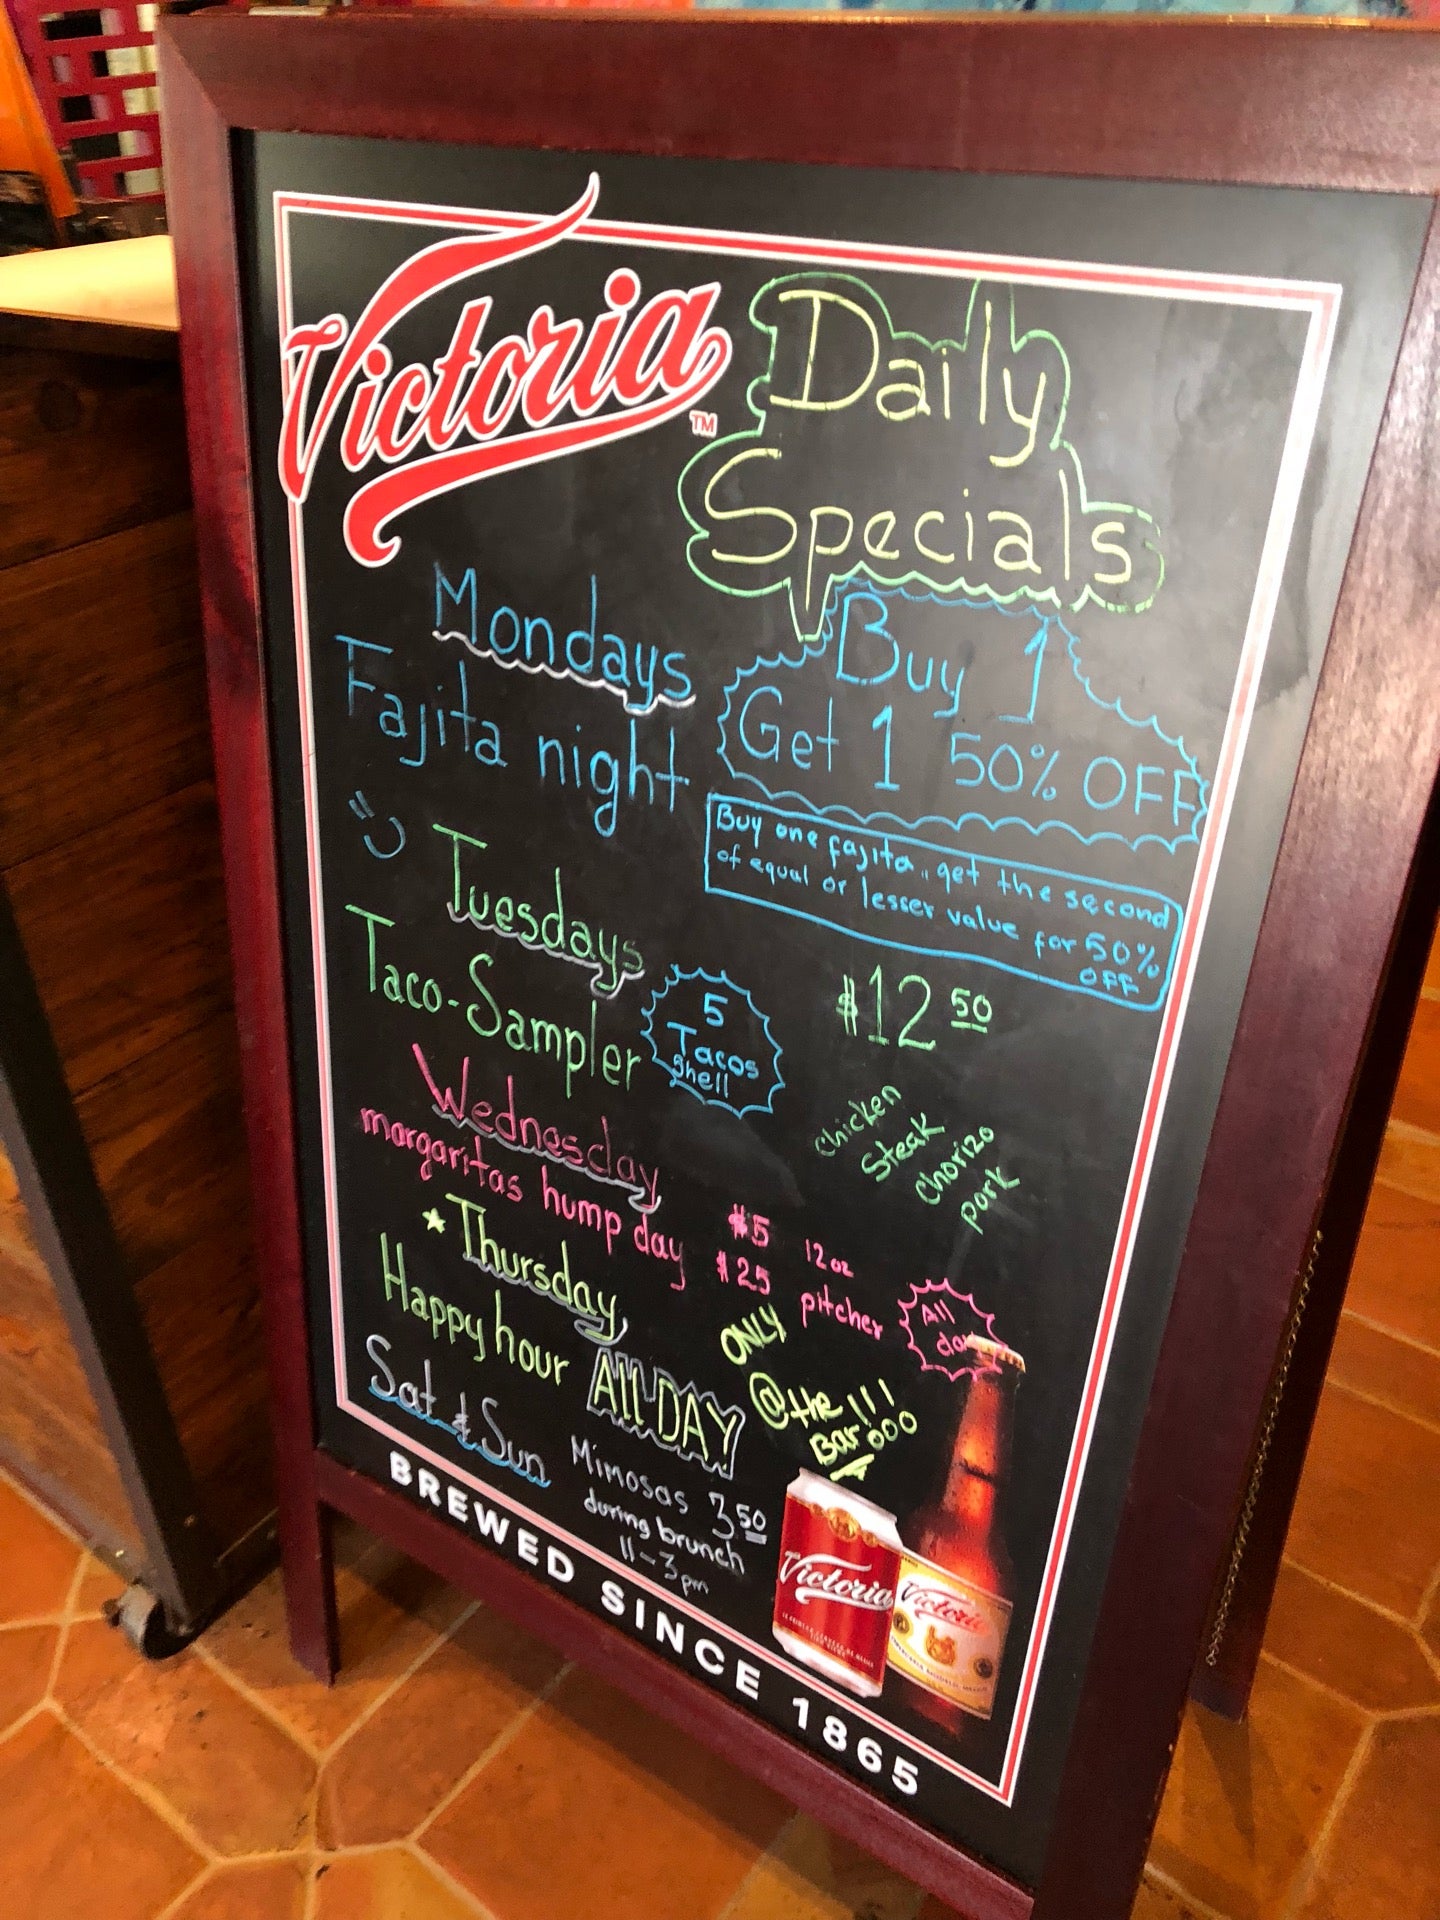 Victoria™
Daily
Specials
Mondays
Fajita night
Buy 1
Get 1 50% OFF
Buy one fajita.. get the second
of equal or lesser value for 50%
OFF
Tuesdays
Taco-Sampler
5
Tacos
Shell
$12 50
Chicken
Steak
Chorizo
Pork
Wednesday
margaritas hump day
$5 12oz
$25 pitcher
All
day
Thursday
Happy hour All DAY
ONLY
@ the
Bar!!!
Sat & Sun
Mimosas 3 50
during brunch
11-3pm
Victoria
Victoria
BREWED SINCE 1865